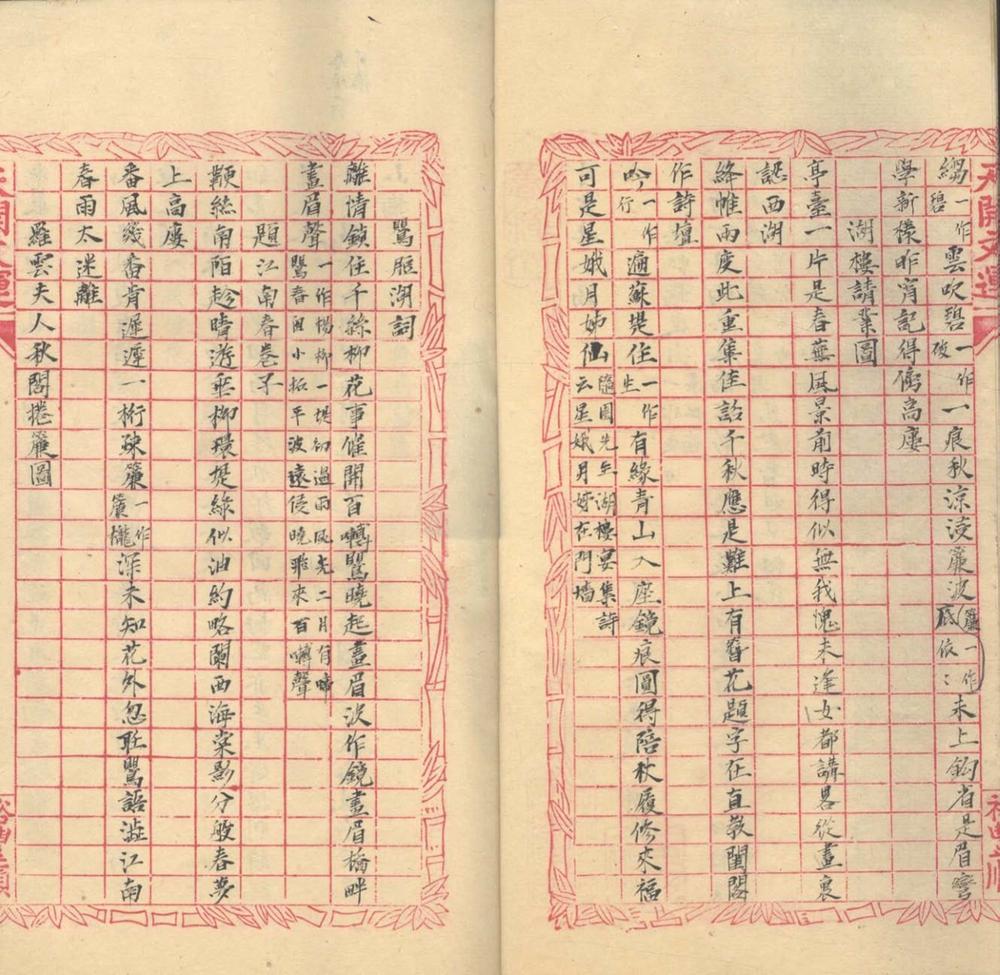 縐一作碧雲吹碧一作破一痕秋涼浸簾波簾底一作依〻未上鈎省是眉彎
學新樣昨宵記得倚高廔
湖樓請業圖
亭臺一片是春蕪風景前時得似無我愧未逢女都講畧從畫裏
認西湖
絳帷兩度此重集佳話千秋應是難上有簪花題字在直教閨閤
作詩壇
吟一作行遍蘇堤住一作生有緣青山入座鏡痕圓得陪秋履修來福
可是星娥月姊仙隨園先生湖樓宴集詩云星娥月姊在門墻
鶯脰湖詞
離情鎖住千絲柳花事催開百囀鶯曉起畫眉波作鏡畫眉橋畔
畫眉聲一作楊柳一堤初過雨風光二月有啼鶯春洄小拓平波遠侵曉飛來百囀聲
題江南春卷子
鞭絲南陌趁晴遊垂柳環堤綠似油約略闌西海棠影分般春夢
上高廔
番風幾番肯遲遲一桁疎簾一作簾櫳深未知花外忽聞鶯語澁江南
春雨太迷離
羅雲夫人秋閣捲簾圖
天開文運